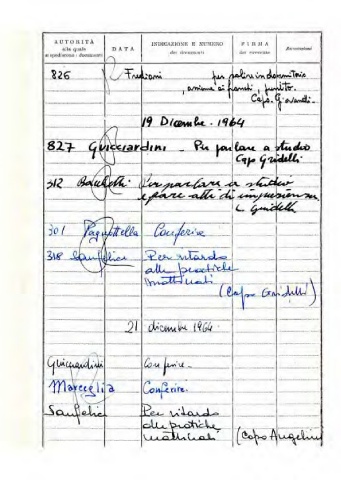 AUTORITÀ
alla quale
si spediscono i documenti
DATA
INDICAZIONE E NUMERO
dei documenti
FIRMA
del ricevente
Annotazioni
826 Frediani per salire in dormitorio
assieme ai fratelli, punito.
Capo
19 Dicembre. 1964
827 Guicciardini - Per parlare a studio
Capo Gridelli
312 Per parlare a studio
e fare atti di
L. Gridelli
301 Pagnottella Conferire
318 Sanfelice Per ritardo
alle pratiche
mattinali
(Capo Gridelli)
21 dicembre 1964
Guicciardini Conferire.
Marceglia Conferire.
Sanfelice Per ritardo
alle pratiche
mattinali (Capo Angelini